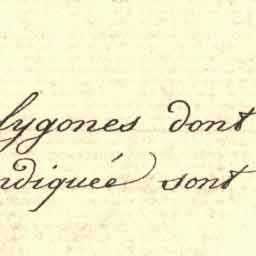 lygones dont
ndiquéé sont